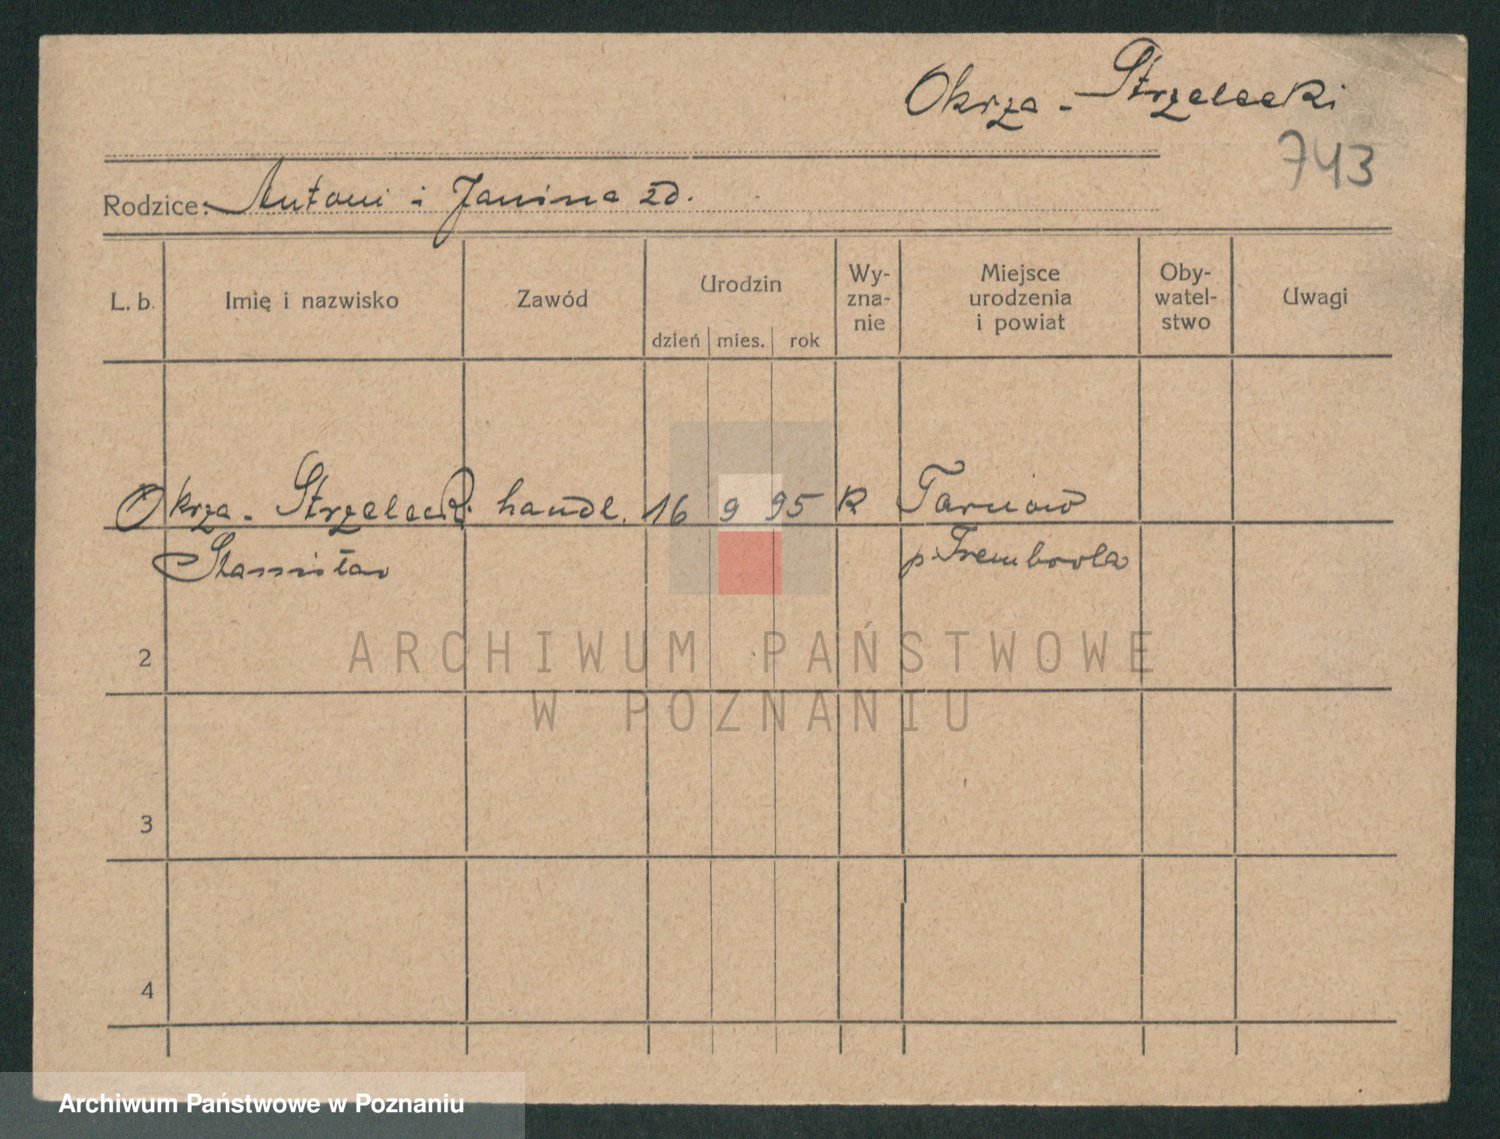 Okrza - Strzelecki
743
Rodzice: Antoni i Janina zd.
L. b. Imię i nazwisko Zawód Urodzin dzień mies. rok Wy-zna-nie Miejsce urodzenia i powiat Oby-watel-stwo Uwagi
Okrza - Strzelecki handl. 16 9 95 R Tarnow
Stanisław p. Trembowla
2
ARCHIWUM PAŃSTWOWE
W POZNANIU
3
4
Archiwum Państwowe w Poznaniu